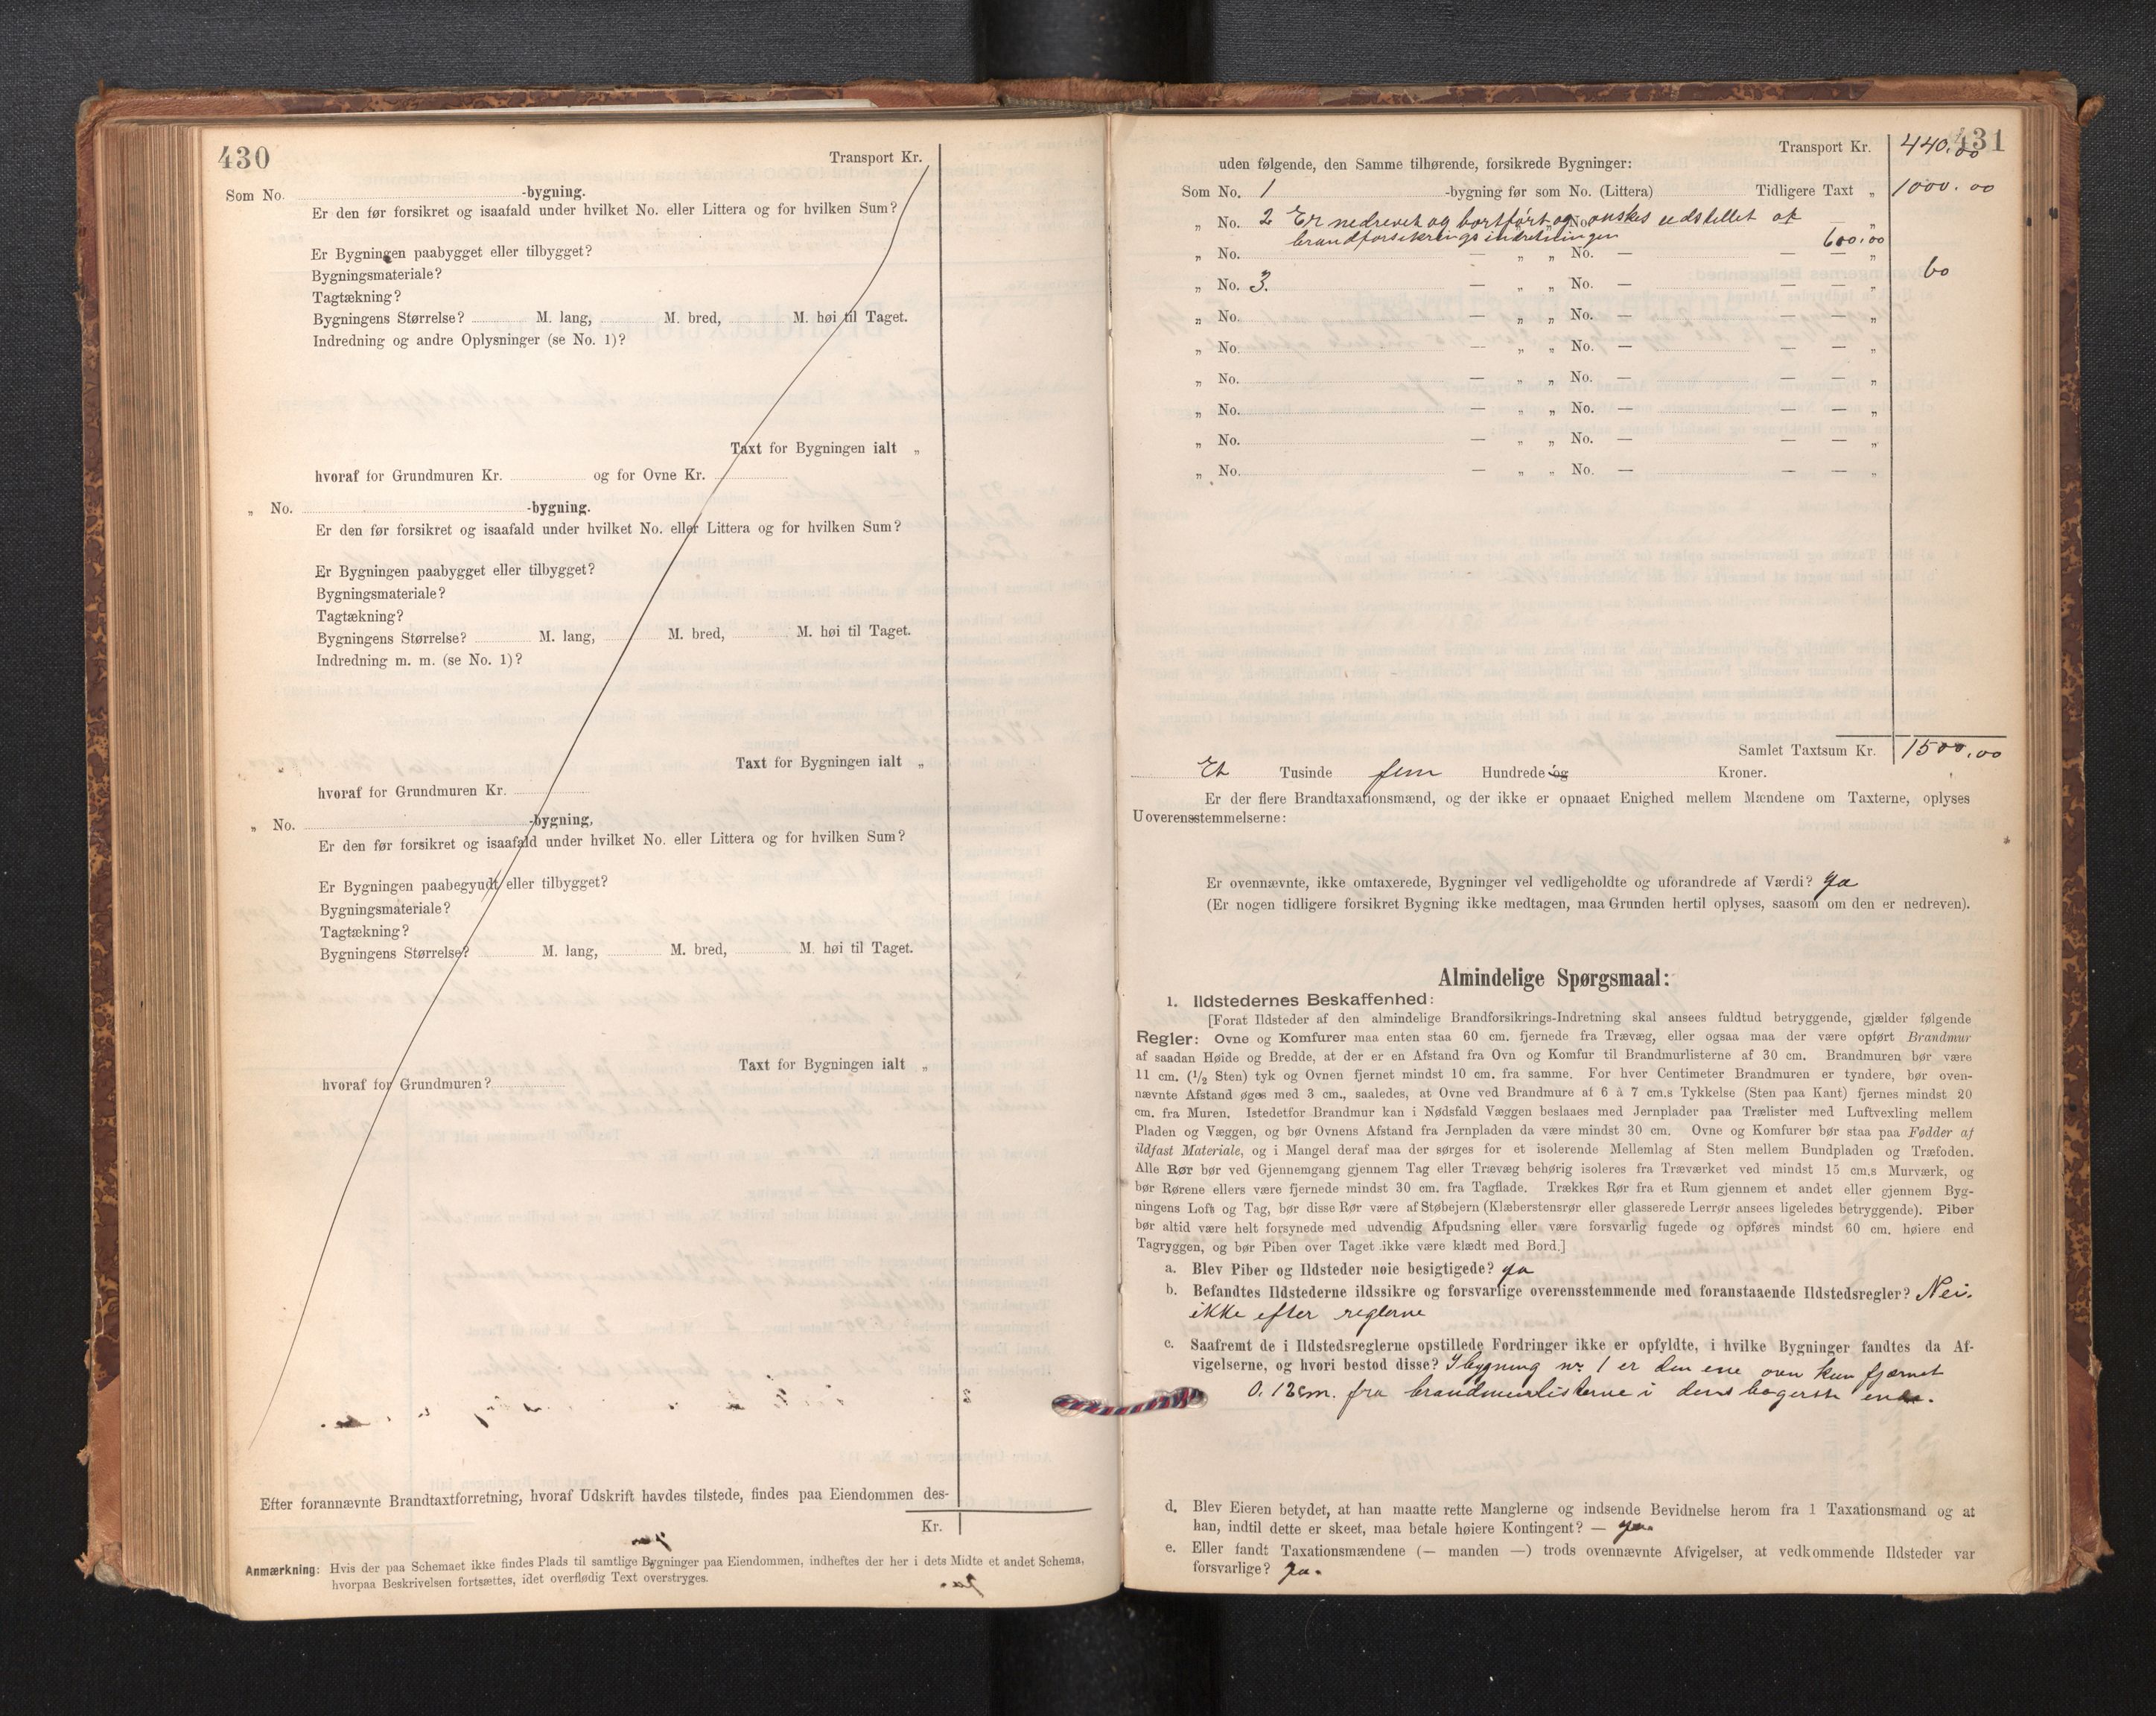 430
Transport Kr.
Som No. -bygning.
Er den før forsikret og isaafald under hvilket No. eller Littera og for hvilken Sum?
Er Bygningen paabygget eller tilbygget?
Bygningsmateriale?
Tagtækning?
Bygningens Størrelse? M. lang, M. bred, M. høi til Taget.
Indredning og andre Oplysninger (se No. 1)?
Taxt for Bygningen ialt „
hvoraf for Grundmuren Kr. og for Ovne Kr.
„ No. -bygning.
Er den før forsikret og isaafald under hvilket No. eller Littera og for hvilken Sum?
Er Bygningen paabygget eller tilbygget?
Bygningsmateriale?
Tagtækning?
Bygningens Størrelse? M. lang, M. bred, M. høi til Taget.
Indredning m. m. (se No. 1)?
Taxt for Bygningen ialt „
hvoraf for Grundmuren Kr.
„ No. -bygning,
Er den før forsikret og isaafald under hvilket No. eller Littera og for hvilken Sum?
Er Bygningen paabegyndt eller tilbygget?
Bygningsmateriale?
Tagtækning?
Bygningens Størrelse? M. lang, M. bred, M. høi til Taget.
Taxt for Bygningen ialt „
hvoraf for Grundmuren?
Efter forannævnte Brandtaxtforretning, hvoraf Udskrift havdes tilstede, findes paa Eiendommen des-
Kr.
Anmærkning: Hvis der paa Schemaet ikke findes Plads til samtlige Bygninger paa Eiendommen, indheftes der her i dets Midte et andet Schema,
hvorpaa Beskrivelsen fortsættes, idet overflødig Text overstryges.
431
Transport Kr. 440,00
uden følgende, den Samme tilhørende, forsikrede Bygninger:
Som No. 1 -bygning før som No. (Littera) Tidligere Taxt „ 1000.00
„ No. 2 Er nedrevet og bortført og No. ønskes udstillet af — „
brandforsikringsindretningen 600.00
„ No. — „ „ No. — — — „
„ No. 3. — „ „ No. — — — „ 60
„ No. — „ „ No. — — — „
„ No. — „ „ No. — — — „
„ No. — „ „ No. — — — „
„ No. — „ „ No. — — — „
„ No. — „ „ No. — — — „
„ No. — „ „ No. — — — „
Samlet Taxtsum Kr. 1500,00
Et Tusinde fem Hundrede og Kroner.
Er der flere Brandtaxationsmænd, og der ikke er opnaaet Enighed mellem Mændene om Taxterne, oplyses
Uoverensstemmelserne:
Er ovennævnte, ikke omtaxerede, Bygninger vel vedligeholdte og uforandrede af Værdi? Ja
(Er nogen tidligere forsikret Bygning ikke medtagen, maa Grunden hertil oplyses, saasom om den er nedreven).
Almindelige Spørgsmaal:
1. Ildstedernes Beskaffenhed:
[Forat Ildsteder af den almindelige Brandforsikrings-Indretning skal ansees fuldtud betryggende, gjælder følgende
Regler: Ovne og Komfurer maa enten staa 60 cm. fjernede fra Trævæg, eller ogsaa maa der være opført Brandmur
af saadan Høide og Bredde, at der er en Afstand fra Ovn og Komfur til Brandmurlisterne af 30 cm. Brandmuren bør være
11 cm. (1/2 Sten) tyk og Ovnen fjernet mindst 10 cm. fra samme. For hver Centimeter Brandmuren er tyndere, bør oven-
nævnte Afstand øges med 3 cm., saaledes, at Ovne ved Brandmure af 6 à 7 cm.s Tykkelse (Sten paa Kant) fjernes mindst 20
cm. fra Muren. Istedetfor Brandmur kan i Nødsfald Væggen beslaaes med Jernplader paa Trælister med Luftvexling mellem
Pladen og Væggen, og bør Ovnens Afstand fra Jernpladen da være mindst 30 cm. Ovne og Komfurer bør staa paa Fødder af
ildfast Materiale, og i Mangel deraf maa der sørges for et isolerende Mellemlag af Sten mellem Bundpladen og Træfoden.
Alle Rør bør ved Gjennemgang gjennem Tag eller Trævæg behørig isoleres fra Træværket ved mindst 15 cm.s Murværk, og
bør Rørene ellers være fjernede mindst 30 cm. fra Tagflade. Trækkes Rør fra et Rum gjennem et andet eller gjennem Byg-
ningens Loft og Tag, bør disse Rør være af Støbejern (Klæberstensrør eller glasserede Lerrør ansees ligeledes betryggende). Piber
bør altid være helt forsynede med udvendig Afpudsning eller være forsvarlig fugede og opføres mindst 60 cm. høiere end
Tagryggen, og bør Piben over Taget ikke være klædt med Bord.]
a. Blev Piber og Ildsteder nøie besigtigede? ja
b. Befandtes Ildstederne ildssikre og forsvarlige overensstemmende med foranstaaende Ildstedsregler? Nei.
ikke efter reglerne
c. Saafremt de i Ildstedsreglerne opstillede Fordringer ikke er opfyldte, i hvilke Bygninger fandtes da Af-
vigelserne, og hvori bestod disse? I bygning nr 1 er den ene ovn kun fjærnet
0.12cm. fra brandmurlisterne i dens bagerste ende.
d. Blev Eieren betydet, at han maatte rette Manglerne og indsende Bevidnelse herom fra 1 Taxationsmand og at
han, indtil dette er skeet, maa betale høiere Kontingent? — ja.
e. Eller fandt Taxationsmændene (— manden —) trods ovennævnte Afvigelser, at vedkommende Ildsteder var
forsvarlige? Ja.